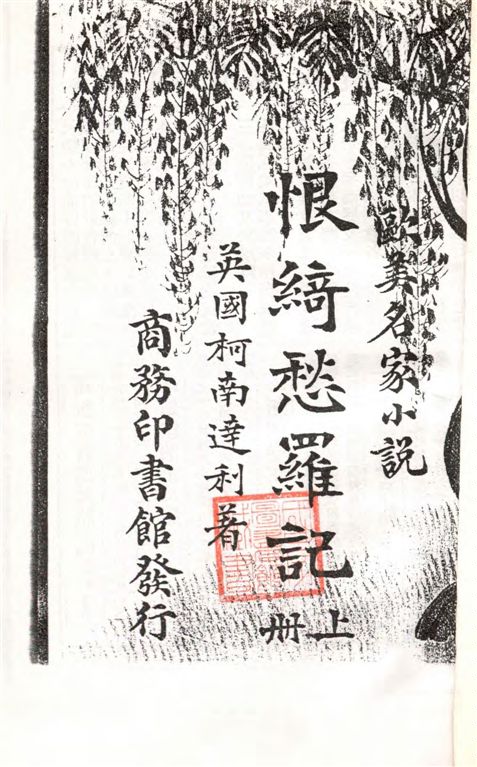 歐美名家小說
恨綺愁羅記
上冊
英國柯南達利著
商務印書館發行